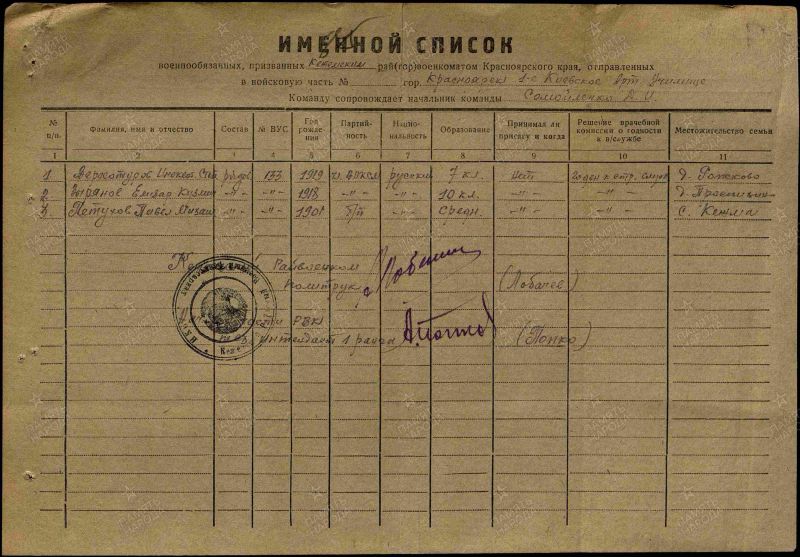 ИМЕННОЙ СПИСОК
военнообязанных, призванных Кежемским рай(гор)военкоматом Красноярского края, отправленных
в войсковую часть № гор. Красноярск 1-е Киевское Арт Училище
Команду сопровождает начальник команды Самойленко
№ п/п. Фамилия, имя и отчество Состав № ВУС Год рождения Партийность Национальность Образование Принимал ли присягу и когда Решение врачебной комиссии о годности к в/службе Местожительство семьи
1 2 3 4 5 6 7 8 9 10 11
1 Верхотуров Инокент. Степ рядов 133 1919 чл. ВЛКСМ русский 7 кл. нет годен к стр. службе
2 Кузьмич -"- -"- 1918 -"- -"- 10 кл. -"- -"-
3 Петухов Павел -"- -"- 1901 б/п -"- средн. -"- -"- с. Кежма
Райвоенком
Политрук (Лобачев)
части РВК
интендант 1 ранга (Попко)
ПАМЯТЬ НАРОДА